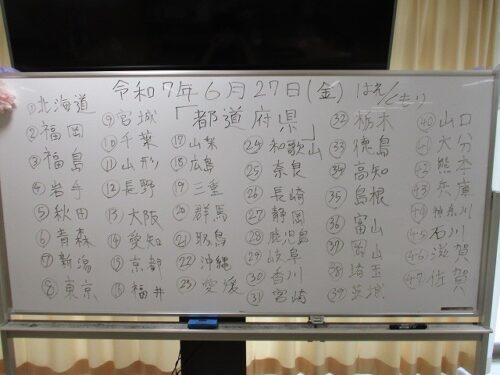 令和7年6月27日(金) はれ/くもり
「都道府県」
①北海道
②福岡
③福島
④岩手
⑤秋田
⑥青森
⑦新潟
⑧東京
⑨宮城
⑩千葉
⑪山形
⑫長野
⑬大阪
⑭愛知
⑮京都
⑯福井
⑰山梨
⑱広島
⑲三重
⑳群馬
㉑鳥取
㉒沖縄
㉓愛媛
㉔和歌山
㉕奈良
㉖長崎
㉗静岡
㉘鹿児島
㉙岐阜
㉚香川
㉛宮崎
㉜栃木
㉝徳島
㉞高知
㉟島根
㊱富山
㊲岡山
㊳埼玉
㊴茨城
㊵山口
㊶大分
㊷熊本
㊸兵庫
㊹神奈川
㊺石川
㊻滋賀
㊼佐賀